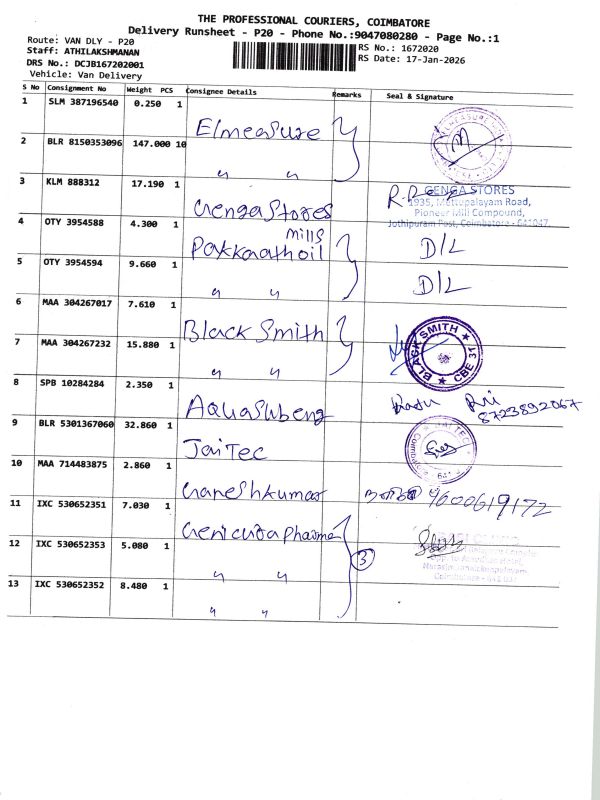 THE PROFESSIONAL COURIERS, COIMBATORE
Delivery Runsheet - P20 - Phone No.:9047080280 - Page No.:1
Route: VAN DLY - P20
Staff: ATHILAKSHMANAN
DRS No.: DCJB167202001
Vehicle: Van Delivery
RS No.: 1672020
RS Date: 17-Jan-2026
S No Consignment No Weight PCS Consignee Details Remarks Seal & Signature
1 SLM 387196540 0.250 1 Elmeasure
2 BLR 8150353096 147.000 10 " "
3 KLM 888312 17.190 1 Genga Stores
GENGA STORES
1935, Mettupalayam Road,
Pioneer Mill Compound,
Jothipuram Post, Coimbatore - 641047.
4 OTY 3954588 4.300 1 Pavkkaath oil mills D/L
5 OTY 3954594 9.660 1 " " D/L
6 MAA 304267017 7.610 1 Black Smith
7 MAA 304267232 15.880 1 " "
BLACK SMITH ★ CBE 31 ★
8 SPB 10284284 2.350 1 Aquasubeng
8723892067
9 BLR 5301367060 32.860 1 JaiTec
10 MAA 714483875 2.860 1 Ganeshkumar 9600619172
11 IXC 530652351 7.030 1 Genicura Pharma
12 IXC 530652353 5.080 1 " " 3
13 IXC 530652352 8.480 1 " "